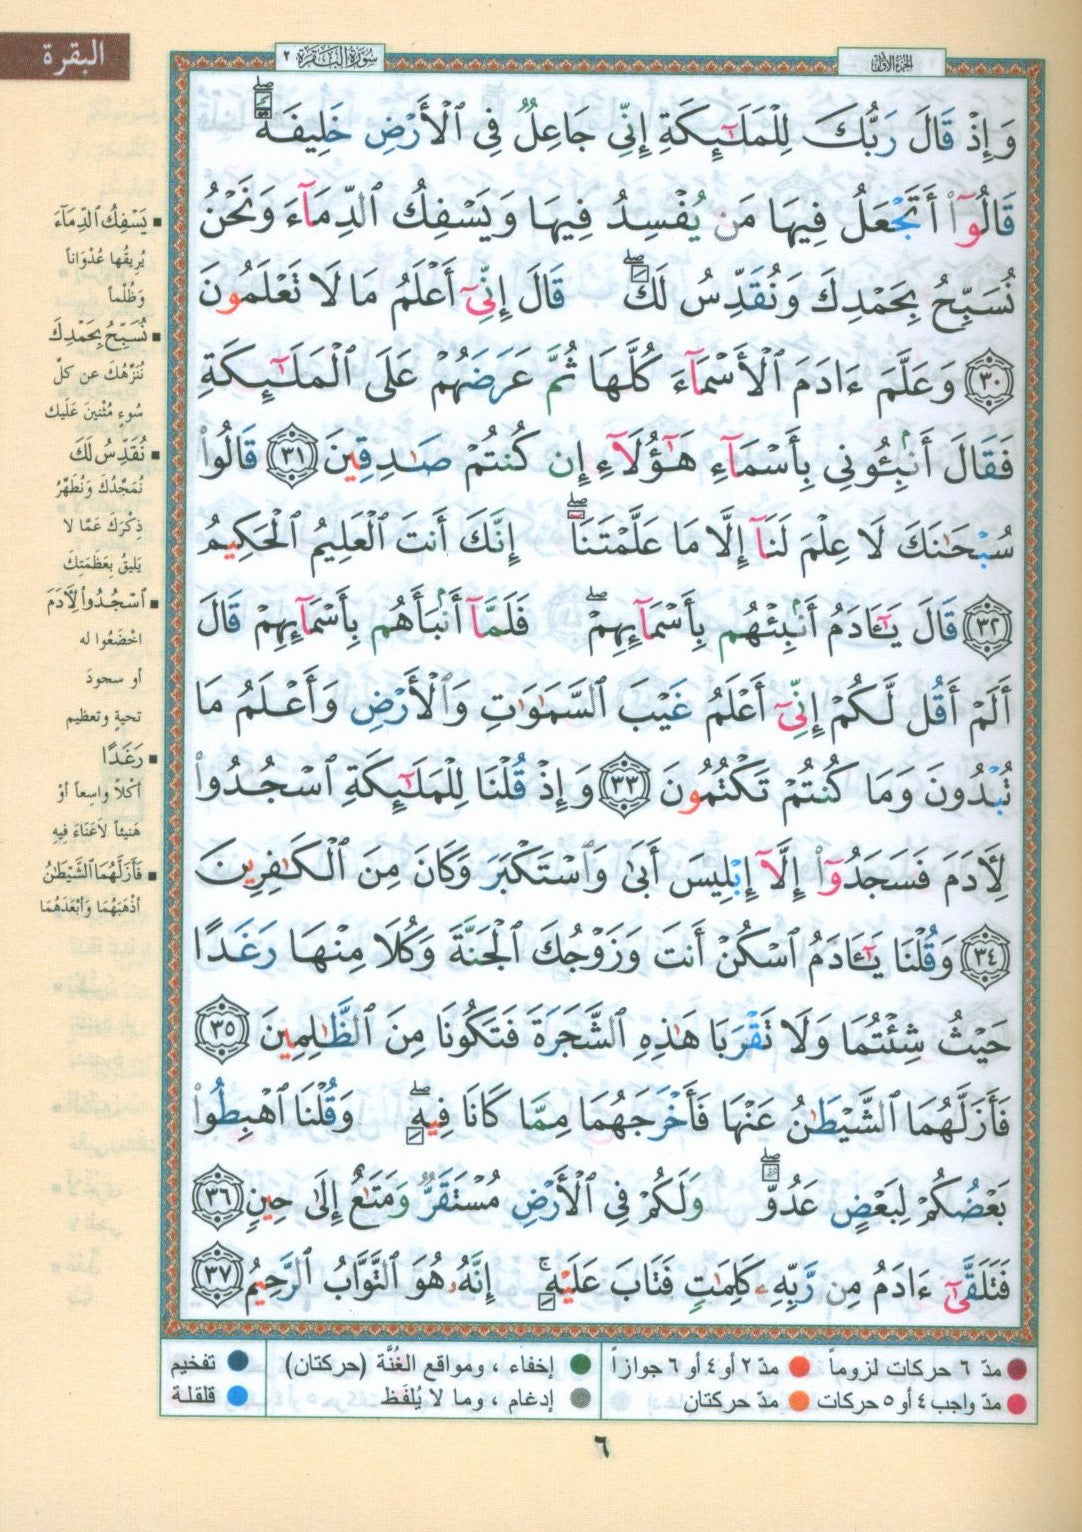 البقرة
سُورَةُ البَقَرَة ٢
الجزء الأول
وَإِذْ قَالَ رَبُّكَ لِلْمَلَـٰٓئِكَةِ إِنِّي جَاعِلٌ فِي ٱلْأَرْضِ خَلِيفَةً ۖ
قَالُوٓا۟ أَتَجْعَلُ فِيهَا مَن يُفْسِدُ فِيهَا وَيَسْفِكُ ٱلدِّمَآءَ وَنَحْنُ
نُسَبِّحُ بِحَمْدِكَ وَنُقَدِّسُ لَكَ ۖ قَالَ إِنِّىٓ أَعْلَمُ مَا لَا تَعْلَمُونَ
٣٠ وَعَلَّمَ ءَادَمَ ٱلْأَسْمَآءَ كُلَّهَا ثُمَّ عَرَضَهُمْ عَلَى ٱلْمَلَـٰٓئِكَةِ
فَقَالَ أَنۢبِـُٔونِى بِأَسْمَآءِ هَـٰٓؤُلَآءِ إِن كُنتُمْ صَـٰدِقِينَ ٣١ قَالُوا۟
سُبْحَـٰنَكَ لَا عِلْمَ لَنَآ إِلَّا مَا عَلَّمْتَنَآ ۖ إِنَّكَ أَنتَ ٱلْعَلِيمُ ٱلْحَكِيمُ
٣٢ قَالَ يَـٰٓـَٔادَمُ أَنۢبِئْهُم بِأَسْمَآئِهِمْ ۖ فَلَمَّآ أَنۢبَأَهُم بِأَسْمَآئِهِمْ قَالَ
أَلَمْ أَقُل لَّكُمْ إِنِّىٓ أَعْلَمُ غَيْبَ ٱلسَّمَـٰوَٰتِ وَٱلْأَرْضِ وَأَعْلَمُ مَا
تُبْدُونَ وَمَا كُنتُمْ تَكْتُمُونَ ٣٣ وَإِذْ قُلْنَا لِلْمَلَـٰٓئِكَةِ ٱسْجُدُوا۟
لِـَٔادَمَ فَسَجَدُوٓا۟ إِلَّآ إِبْلِيسَ أَبَىٰ وَٱسْتَكْبَرَ وَكَانَ مِنَ ٱلْكَـٰفِرِينَ
٣٤ وَقُلْنَا يَـٰٓـَٔادَمُ ٱسْكُنْ أَنتَ وَزَوْجُكَ ٱلْجَنَّةَ وَكُلَا مِنْهَا رَغَدًا
حَيْثُ شِئْتُمَا وَلَا تَقْرَبَا هَـٰذِهِ ٱلشَّجَرَةَ فَتَكُونَا مِنَ ٱلظَّـٰلِمِينَ ٣٥
فَأَزَلَّهُمَا ٱلشَّيْطَـٰنُ عَنْهَا فَأَخْرَجَهُمَا مِمَّا كَانَا فِيهِ ۖ وَقُلْنَا ٱهْبِطُوا۟
بَعْضُكُمْ لِبَعْضٍ عَدُوٌّ ۖ وَلَكُمْ فِي ٱلْأَرْضِ مُسْتَقَرٌّ وَمَتَـٰعٌ إِلَىٰ حِينٍ ٣٦
فَتَلَقَّىٰٓ ءَادَمُ مِن رَّبِّهِۦ كَلِمَـٰتٍ فَتَابَ عَلَيْهِ ۚ إِنَّهُۥ هُوَ ٱلتَّوَّابُ ٱلرَّحِيمُ ٣٧
▪ يَسْفِكُ ٱلدِّمَآءَ
يُرِيقُها عُدْوَاناً
وَظُلْماً
▪ نُسَبِّحُ بِحَمْدِكَ
نُنَزِّهُكَ عن كلِّ
سُوءٍ مُثْنينَ عَلَيكَ
▪ نُقَدِّسُ لَكَ
نُمَجِّدُكَ وَنُطَهِّرُ
ذِكْرَكَ عَمَّا لا
يَلِيقُ بِعَظَمَتِكَ
▪ ٱسْجُدُوا۟ لِـَٔادَمَ
اخْضَعُوا له
أو سجودَ
تحيةٍ وتعظيم
▪ رَغَدًا
أَكْلاً واسِعاً أوْ
هَنيئاً لاَعَنَاءَ فِيهِ
▪ فَأَزَلَّهُمَا ٱلشَّيْطَـٰنُ
أَذْهَبَهُمَا وَأَبْعَدَهُمَا
مدّ ٦ حركات لزوماً ● مدّ ٢ أو ٤ أو ٦ جوازاً
مدّ واجب ٤ أو ٥ حركات ● مدّ حركتان
إخفاء ، ومواقع الغُنَّة (حركتان)
إدغام ، وما لا يُلفَظ
تفخيم
قلقلة
٦